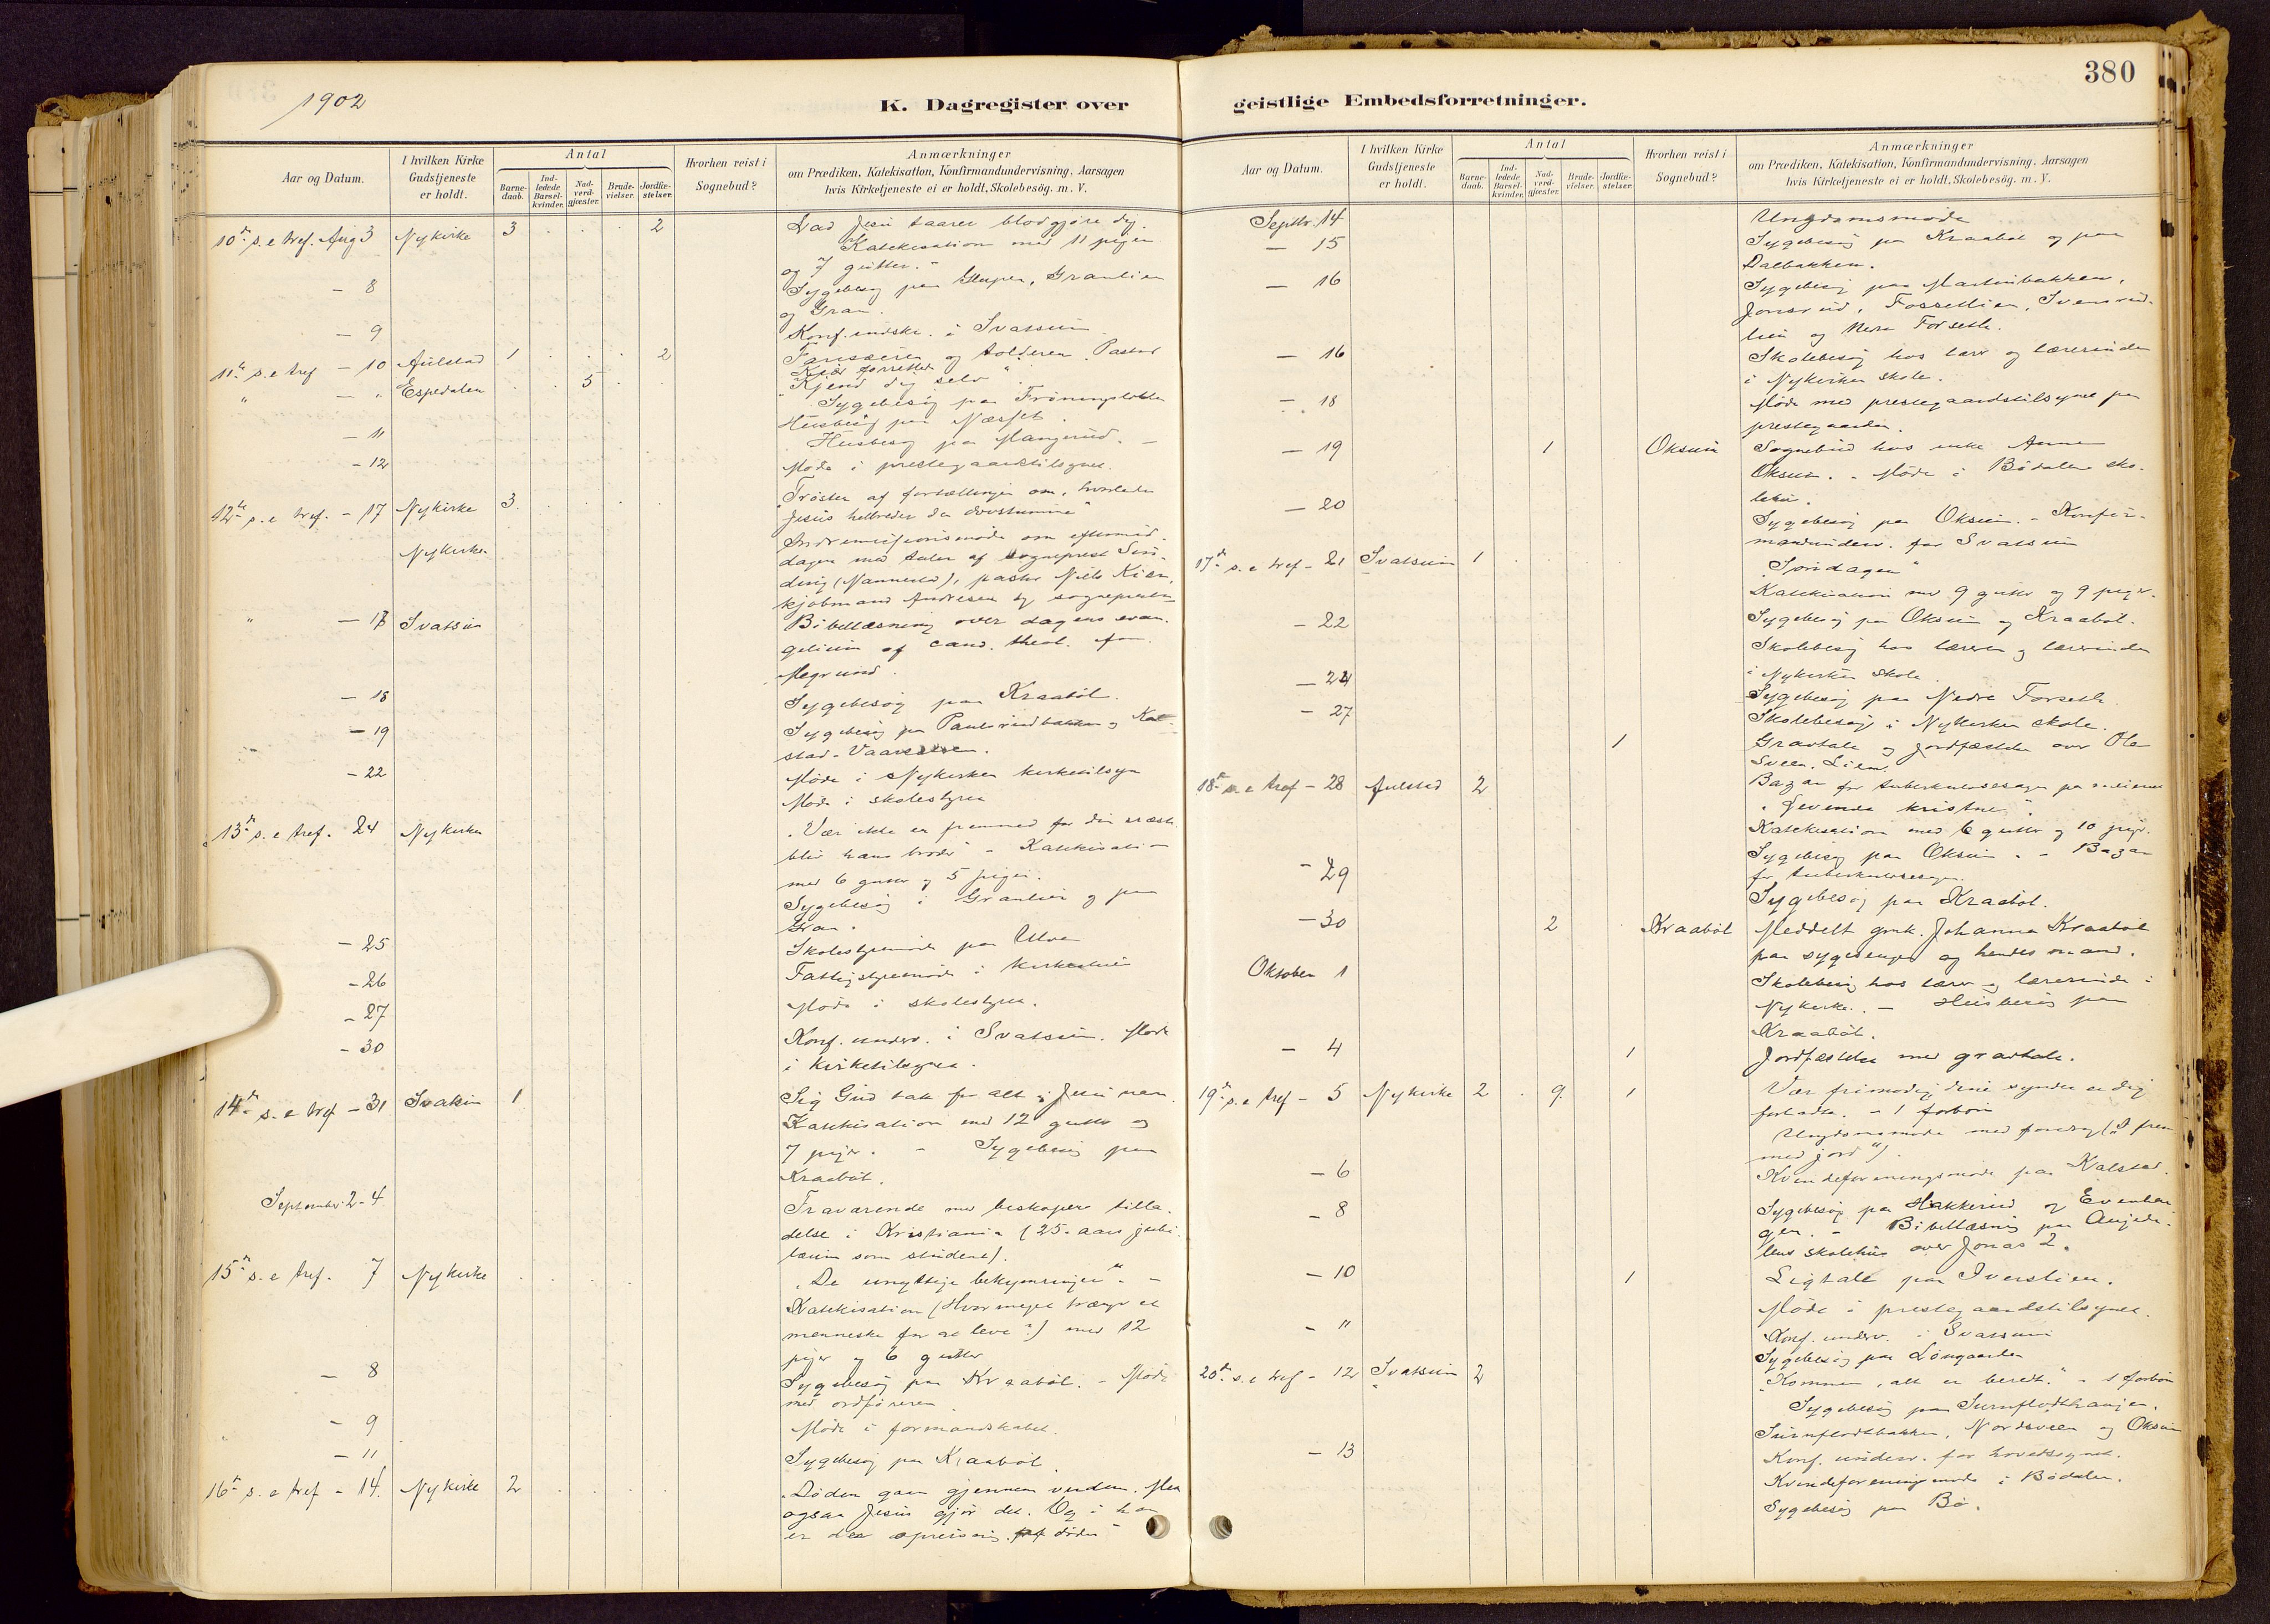 1902
K. Dagregister over
Aar og Datum.
I hvilken Kirke Gudstjeneste er holdt.
Antal
Barnedaab.
Indledede Barselkvinder.
Nadverdgjæster.
Brudevielser.
Jordfæstelser.
Hvorhen reist i Sognebud?
Anmærkninger
om Prædiken, Katekisation, Konfirmandundervisning, Aarsagen
hvis Kirketjeneste ei er holdt, Skolebesøg. m. V.
10de s. e tref. Aug 3 Nykirke 3 . . . 2 Lad Jesu taarer blødgjøre dig
Katekisation med 11 piger
og 7 gutter.
- 8 Sygebesøg paa Granlien
og Gran.
- 9 Konf. underv. i Svatsum
11te s. e tref - 10 Aulstad 1 . . . 2 Farisæeren og tolderen. Pastor
Kjær forretter
" - " Espedalen . . 5 . . "Kjend dig selv"
Sygebesøg paa
Husbesøg paa
- 11 Husbesøg paa
- 12 Møde i prestegaardstilsynet.
12te s. e tref. - 17 Nykirke 3 . . . Trøsten af fortællingen om, hvorledes
Jesus helbreder den døvstumme"
Nykirke Indremissionsmøde om eftermid-
dagen med taler af sogneprest
pastor Niels Kjær,
kjøbmand Andresen og sognepresten
" - 17 Svatsum Bibellæsning over dagens evan-
gelium af cand. theol.
- 18 Sygebesøg paa Kraabøl.
- 19 Sygebesøg paa Paulsrudbakken og Kal-
stad.
- 22 Møde i Nykirkes kirketilsyn
Møde i skolestyret
13de s. e tref. 24 Nykirke "Vær ikke en fremmed for din næste
bliv hans broder" - Katekisation
med 6 gutter og 5 piger.
Sygebesøg i Granlien og paa
Gran.
- 25 Skolestyremøde paa
- 26 Fattigstyremøde i
- 27 Møde i skolestyret.
- 30 Konf. underv. i Svatsum. Møde
i kirketilsynet.
14de s. e tref - 31 Svatsum 1 Sig Gud tak for alt i Jesu navn.
Katekisation med 12 gutter og
7 piger. - Sygebesøg paa
Kraabøl.
September 2-4 Fraværende med biskopens tilla-
delse i Kristiania (25-aars jubi-
læum som student).
15de s. e tref. 7 Nykirke . . . "De unyttige bekymringer". -
Katekisation (Hvor meget trænger et
menneske for at leve?) med 12
piger og 6 gutter
- 8 Sygebesøg paa Kraabøl. - Møde
med ordføreren
- 9 Møde i formandskabet.
- 11 Sygebesøg paa Kraabøl.
16de s. e tref - 14. Nykirke 2 . . . "Døden gaar gjennem verden. Men
ogsaa Jesus gjør det. Og i ham
er der opreisning døden"
geistlige Embedsforretninger.
380
Aar og Datum.
I hvilken Kirke Gudstjeneste er holdt.
Antal
Barnedaab.
Indledede Barselkvinder.
Nadverdgjæster.
Brudevielser.
Jordfæstelser.
Hvorhen reist i Sognebud?
Anmærkninger
om Prædiken, Katekisation, Konfirmandundervisning, Aarsagen
hvis Kirketjeneste ei er holdt, Skolebesøg. m. V.
Septbr. 14 Ungdomsmøde
- 15 Sygebesøg paa Kraabøl og paa
Dalbakken.
- 16 Sygebesøg paa Martinbakken,
Jonsrud, Fosselien, Svensrud-
lien og Nedre Forseth.
- 16 Skolebesøg hos lærer og lærerinden
i Nykirkes skole.
- 18 Møde med prestegaardstilsynet paa
prestegaarden.
- 19 1 Oksum Sognebud hos enke Anne
Oksum. - Møde i Bødalens sko-
lehus.
- 20 Sygebesøg paa Oksum. - Konfir-
mandunderv. for Svatsum
17de s. e tref - 21 Svatsum 1 "Søndagen"
Katekisation med 9 gutter og 9 piger.
- 22 Sygebesøg paa Oksum og Kraabøl.
Skolebesøg hos læreren og lærerinden
i Nykirkes skole.
- 24 Sygebesøg paa Nedre Forseth
- 27 Skolebesøg i Nykirkes skole.
1 Gravtale og jordfæstelse over Ole
Sveen, Lien.
Bazar for tuberkulosesagen paa
18de s. e tref - 28 Aulstad 2 "Levende kristne".
Katekisation med 6 gutter og 10 piger.
- 29 Sygebesøg paa Oksum. - Bazar
for tuberkulosesagen.
Sygebesøg paa Kraabøl.
- 30 2 Kraabøl Meddelt gmk. Johanna Kraabøl
paa sygesengen og hendes mand.
Oktober 1 Skolebesøg hos lærer og lærerinde i
Nykirke. - Husbesøg paa
Kraabøl.
- 4 1 Jordfæstelse med gravtale.
19de s. e tref - 5 Nykirke 2 . 9 1 Vær frimodig dine synder er dig
forladte. - 1 forbøn
Ungdomsmøde med foredrag ("
med jord").
- 6 Kvindeforeningsmøde paa Kalstad.
- 8 Sygebesøg paa Hakkerud og
- Bibellæsning paa
skolehus over Jonas 2.
- 10 1 Ligtale paa Iverslien.
Møde i prestegaardstilsynet.
- 11 Konf. underv. i Svatsum
Sygebesøg paa
20de s. e tref - 12 Svatsum 2 "Kommer, alt er beredt." - 1 forbøn
Sygebesøg paa
Nordsveen og Oksum
- 13 Konf. underv. for hovedsognet.
Kvindeforeningsmøde i Bødalen.
Sygebesøg paa Bø.